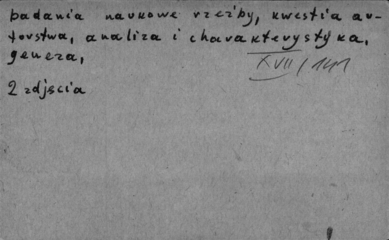 badania naukowe rzeźby, kwestia au-
torstwa, analiza i charakterystyka,
geneza,
XVII/141
2 zdjęcia